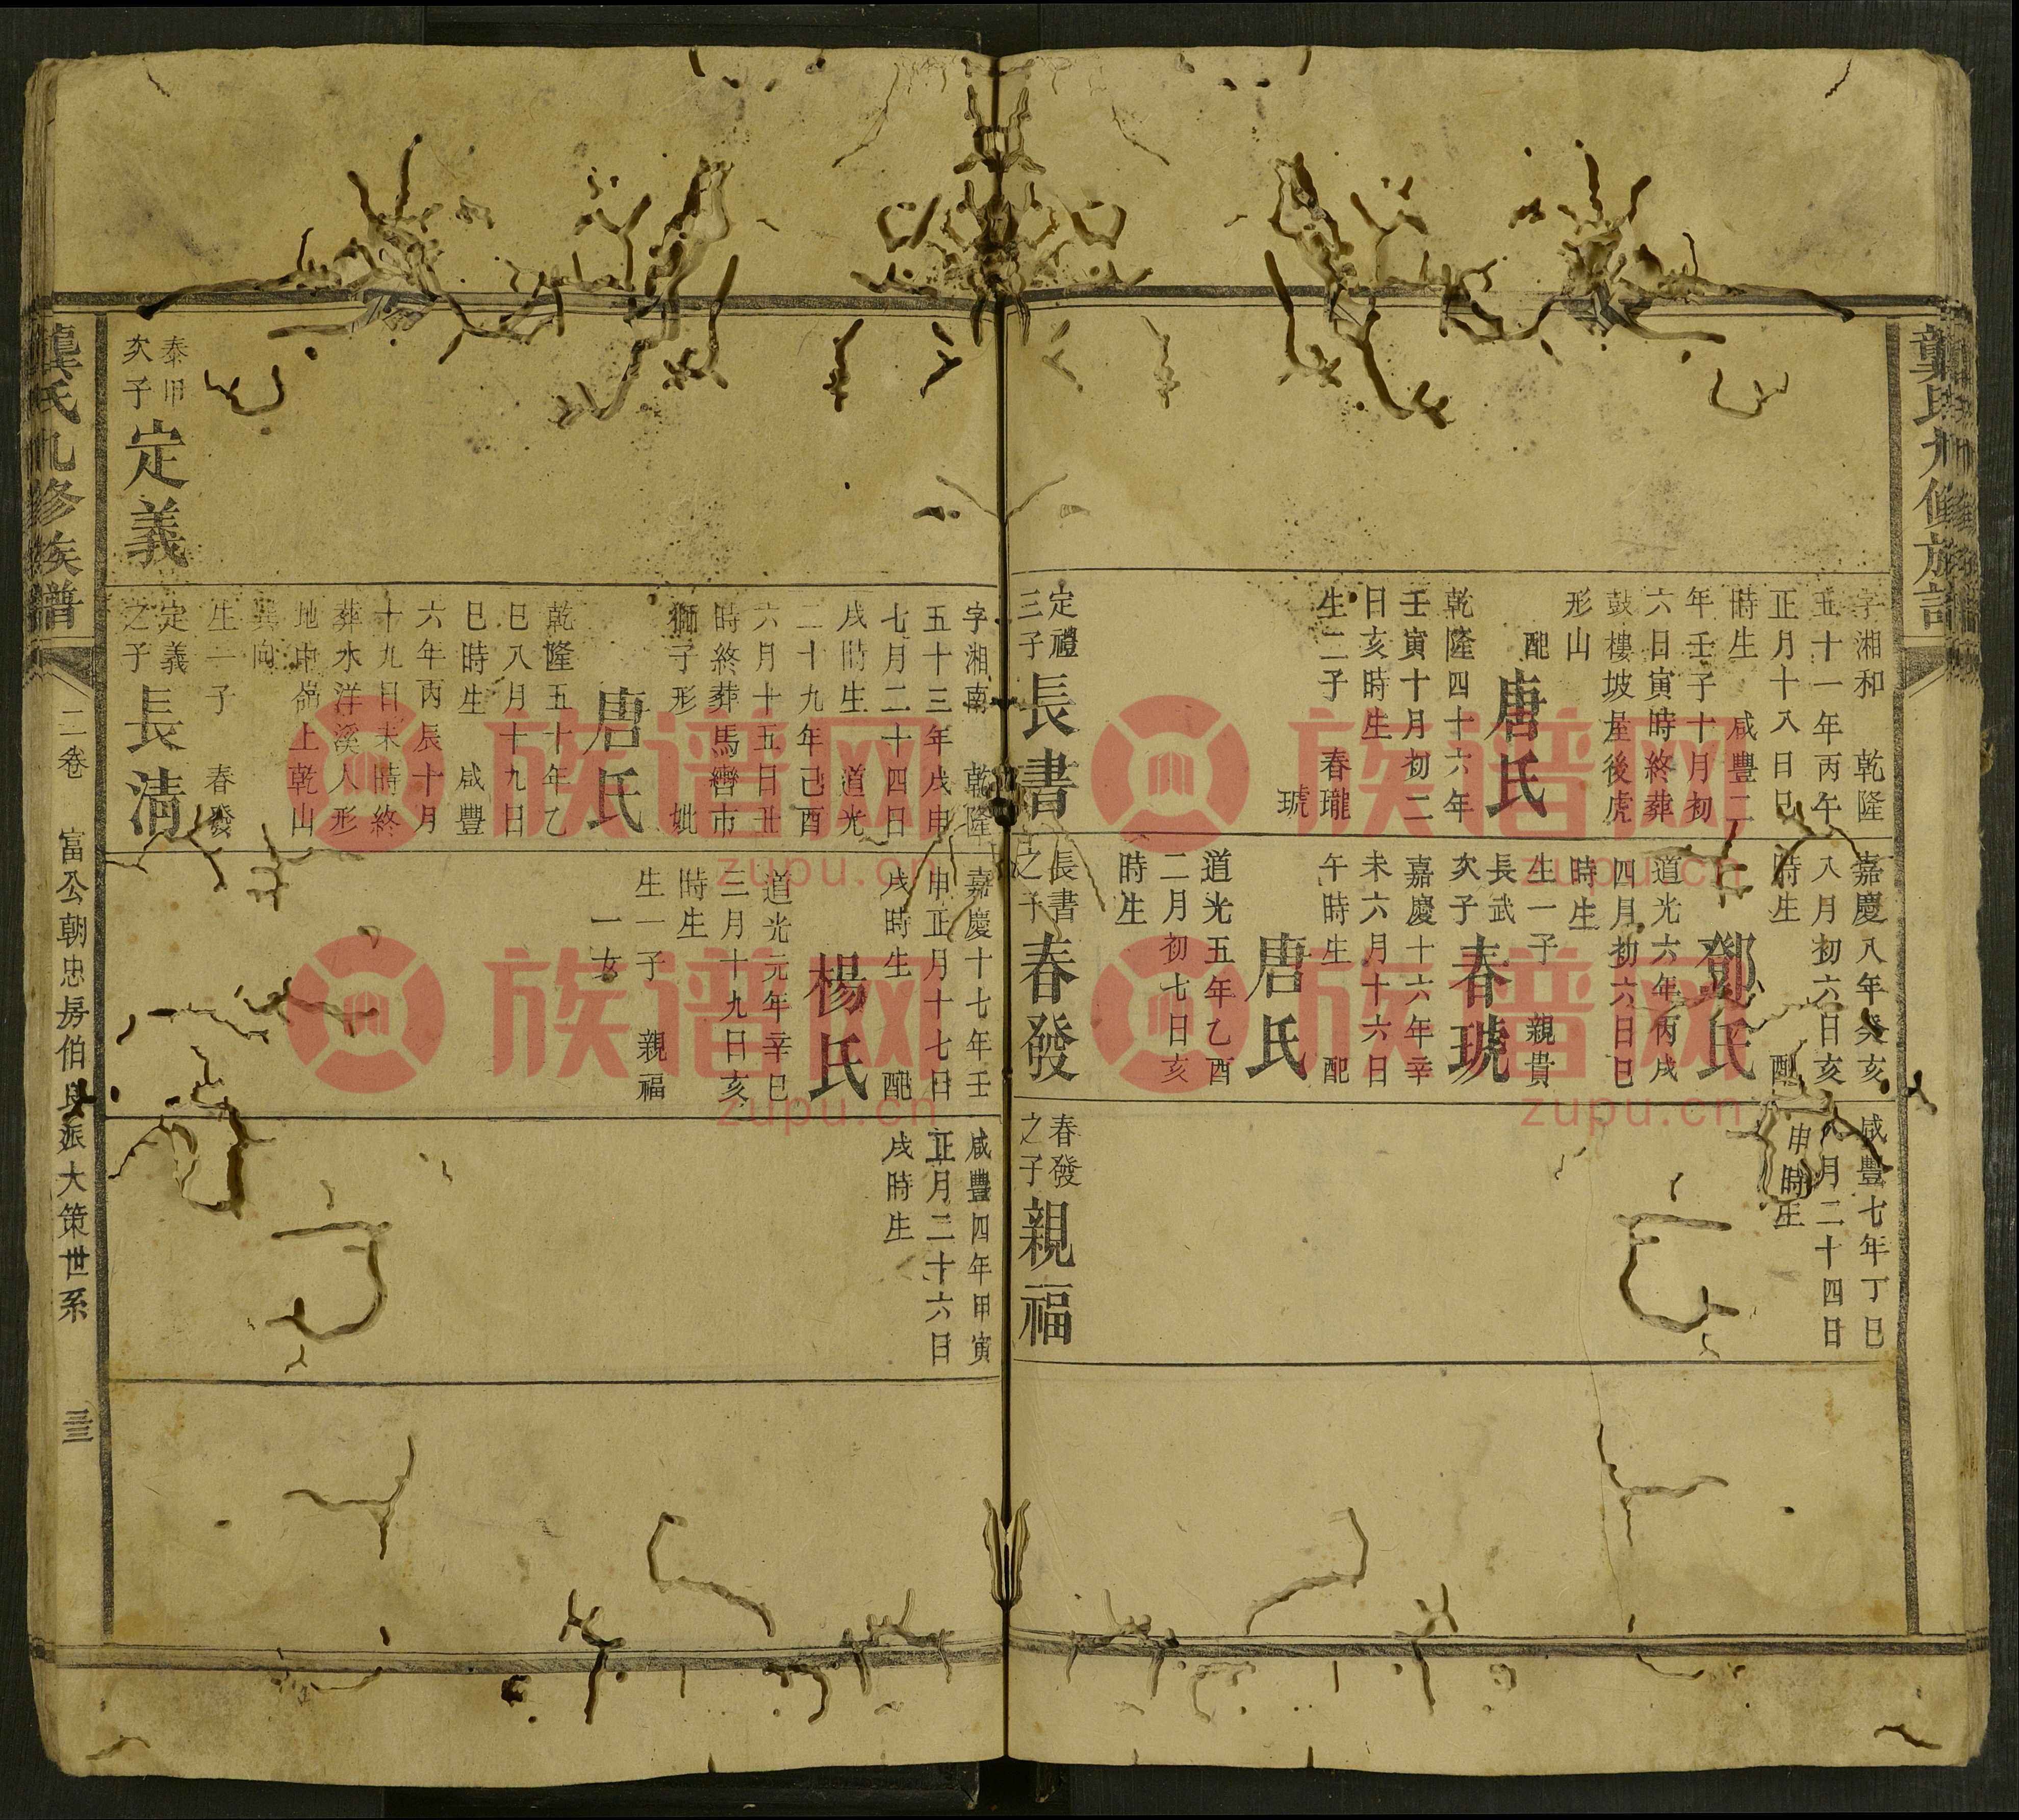 字湘和　乾隆
五十一年丙午
正月十八日巳
時生　咸豐二
年壬子十月初
六日寅時終葬
鼓樓坡屋後虎
形山
配
唐氏
乾隆四十六年
壬寅十月初二
日亥時生
生二子　春瓏
琥
定禮
三子
長書
嘉慶八年癸亥
八月初六日亥
時生　配
鄧氏
道光六年丙戌
四月初六日巳
時生
生一子　親貴
長武
次子
春琥
嘉慶十六年辛
未六月十六日
午時生　配
唐氏
道光五年乙酉
二月初七日亥
時生
長書
之子
春發
咸豐七年丁巳
八月二十四日
申時生
春發
之子
親福
字湘南　乾隆
五十三年戊申
七月二十四日
戌時生　道光
二十九年己酉
六月十五日丑
時終葬馬轡市
獅子形　妣
唐氏
乾隆五十年乙
巳八月十九日
巳時生　咸豐
六年丙辰十月
十九日未時終
葬水洋溪人形
地中嶺上乾山
巽向
生一子　春發
定義
之子
長清
嘉慶十七年壬
申正月十七日
戌時生　配
楊氏
道光元年辛巳
三月十九日亥
時生
生一子　親福
一女
咸豐四年甲寅
正月二十六日
戌時生
次子
定義
龔氏九修族譜
二卷
富公朝忠房伯良派大策世系
三三
族谱网
zupu.cn
族谱网
zupu.cn
族谱网
zupu.cn
族谱网
zupu.cn